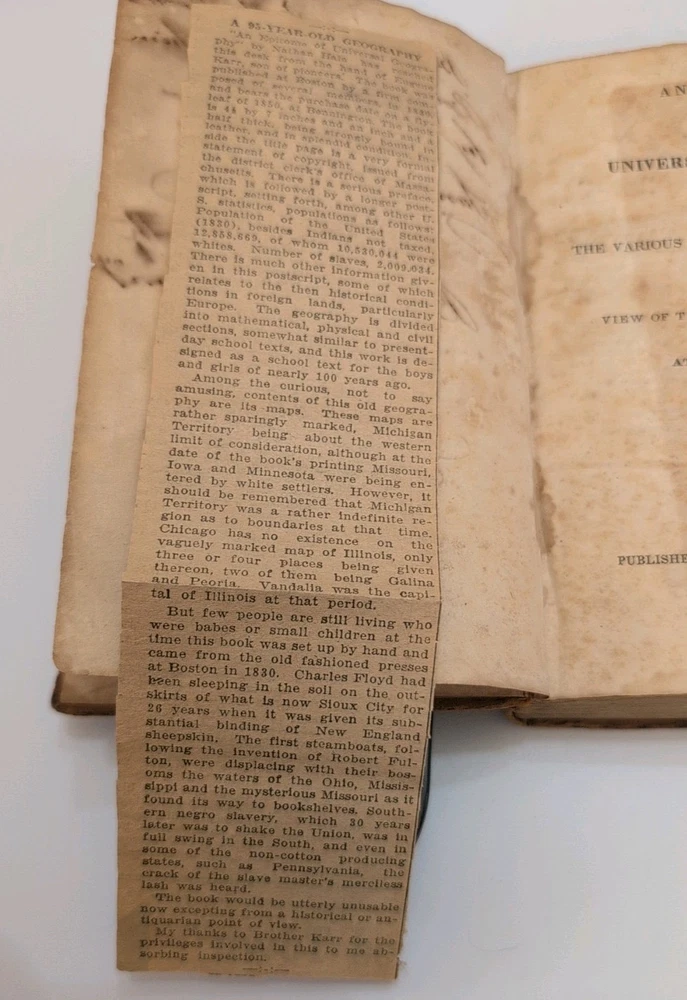 A 95-YEAR-OLD GEOGRAPHY
"An Epitome of Universal Geogra-
phy" by Nathan Hale has reached
this desk from the hand of Eugene
Karr, son of pioneers. The book was
published at Boston by a firm com-
posed of several members, in 1830,
and bears the purchase date on a fly-
leaf of 1850, at Bennington. The book
is 4½ by 7 inches and an inch and a
half thick, being strongly bound in
leather, and in splendid condition. In-
side the title page is a very formal
statement of copyright, issued from
the district clerk's office of Massa-
chusetts. There is a serious preface,
which is followed by a longer post-
script, setting forth, among other U.
S. statistics, populations as follows:
Population of the United States
(1830), besides Indians not taxed,
12,858,669, of whom 10,530,044 were
whites. Number of slaves, 2,009,034.
There is much other information giv-
en in this postscript, some of which
relates to the then historical condi-
tions in foreign lands, particularly
Europe. The geography is divided
into mathematical, physical and civil
sections, somewhat similar to present-
day school texts, and this work is de-
signed as a school text for the boys
and girls of nearly 100 years ago.
Among the curious, not to say
amusing, contents of this old geogra-
phy are its maps. These maps are
rather sparingly marked, Michigan
Territory being about the western
limit of consideration, although at the
date of the book's printing Missouri,
Iowa and Minnesota were being en-
tered by white settlers. However, it
should be remembered that Michigan
Territory was a rather indefinite re-
gion as to boundaries at that time.
Chicago has no existence on the
vaguely marked map of Illinois, only
three or four places being given
thereon, two of them being Galina
and Peoria. Vandalia was the capi-
tal of Illinois at that period.
But few people are still living who
were babes or small children at the
time this book was set up by hand and
came from the old fashioned presses
at Boston in 1830. Charles Floyd had
been sleeping in the soil on the out-
skirts of what is now Sioux City for
26 years when it was given its sub-
stantial binding of New England
sheepskin. The first steamboats, fol-
lowing the invention of Robert Ful-
ton, were displacing with their bos-
oms the waters of the Ohio, Missis-
sippi and the mysterious Missouri as it
found its way to bookshelves. South-
ern negro slavery, which 30 years
later was to shake the Union, was in
full swing in the South, and even in
some of the non-cotton producing
states, such as Pennsylvania, the
crack of the slave master's merciless
lash was heard.
The book would be utterly unusable
now excepting from a historical or an-
tiquarian point of view.
My thanks to Brother Karr for the
privileges involved in this to me ab-
sorbing inspection.
AN
UNIVERS
THE VARIOUS
VIEW OF T
AT
PUBLISHE